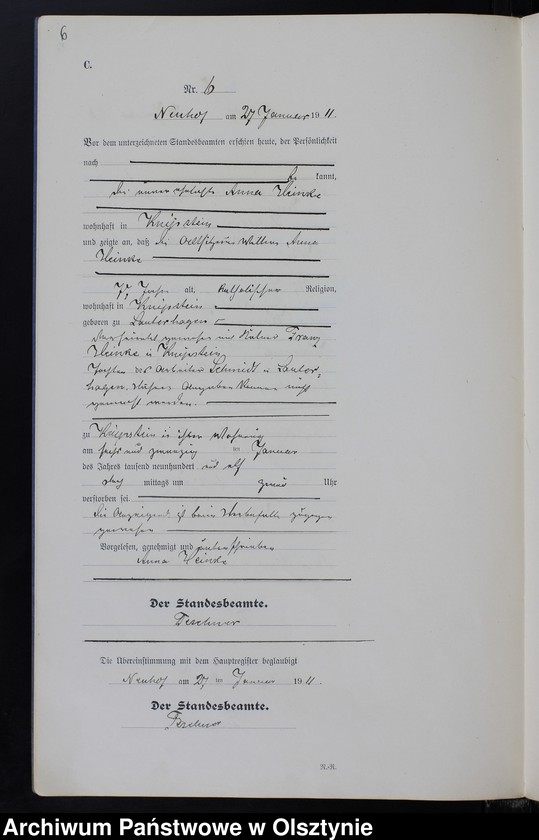 6
C.
Nr. 6
Neuhof am 27 Januar 1911.
Vor dem unterzeichneten Standesbeamten erschien heute, der Persönlichkeit
nach
be kannt,
die unverehelichte Anna Heinke
wohnhaft in Knipstein
und zeigte an, daß die Altsitzers Wittwe Anna
Heinke
77 Jahre alt, katholischer Religion,
wohnhaft in Knipstein
geboren zu Lauterhagen
Verheiratet gewesen mit Franz
Heinke in Knipstein
Tochter des Arbeiters Schmidt in Lauter-
hagen. Nähere Angaben können nicht
gemacht werden.
zu Knipstein in ihrer Wohnung
am sechs und zwanzig ten Januar
des Jahres tausend neunhundert und elf
Nach mittags um zwei Uhr
verstorben sei.
Die Anzeigende ist beim Sterbefalle zugegen
gewesen
Vorgelesen, genehmigt und unterschrieben
Anna Heinke
Der Standesbeamte.
Die Übereinstimmung mit dem Hauptregister beglaubigt
Neuhof am 27 ten Januar 1911.
Der Standesbeamte.
R.-R.
Archiwum Państwowe w Olsztynie